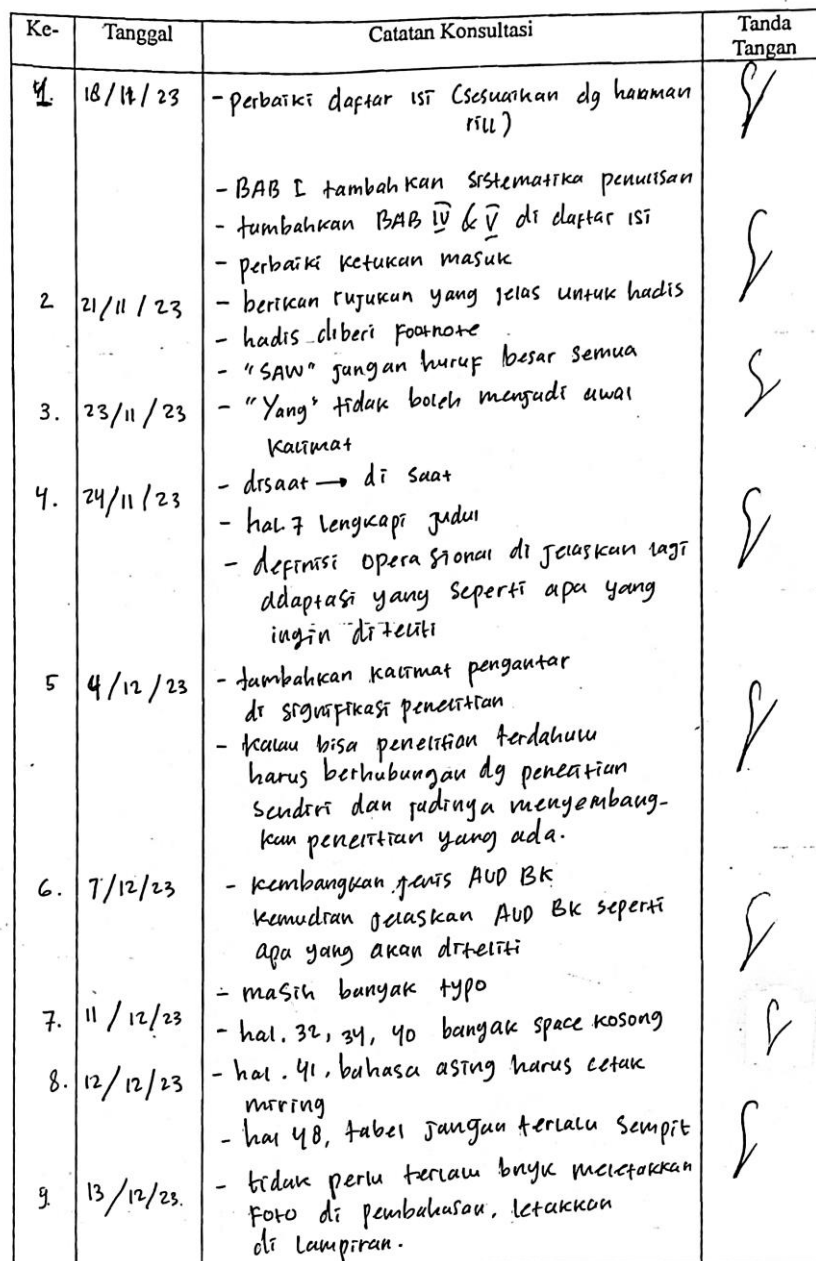 Ke- Tanggal Catatan Konsultasi Tanda Tangan
1. 18/11/23 - perbaiki daftar isi (sesuaikan dg halaman
riil)
- BAB I tambahkan sistematika penulisan
- tambahkan BAB IV & V di daftar isi
- perbaiki ketukan masuk
2 21/11/23 - berikan rujukan yang jelas untuk hadis
- hadis diberi Footnote
- "SAW" jangan huruf besar semua
3. 23/11/23 - "Yang" tidak boleh menjadi awal
kalimat
4. 24/11/23 - disaat → di saat
- hal. 7 lengkapi judul
- definisi operasional di jelaskan lagi
adaptasi yang seperti apa yang
ingin diteliti
5 4/12/23 - tambahkan kalimat pengantar
di signifikasi penelitian
- kalau bisa penelitian terdahulu
harus berhubungan dg penelitian
sendiri dan jadinya menyembang-
kan penelitian yang ada.
6. 7/12/23 - kembangkan jenis AUD BK
kemudian jelaskan AUD BK seperti
apa yang akan diteliti
- masih banyak typo
7. 11/12/23 - hal. 32, 34, 40 banyak space kosong
8. 12/12/23 - hal. 41, bahasa asing harus cetak
miring
- hal 48, tabel jangan terlalu sempit
9. 13/12/23. - tidak perlu terlalu bnyk meletakkan
Foto di pembahasan, letakkan
di lampiran.